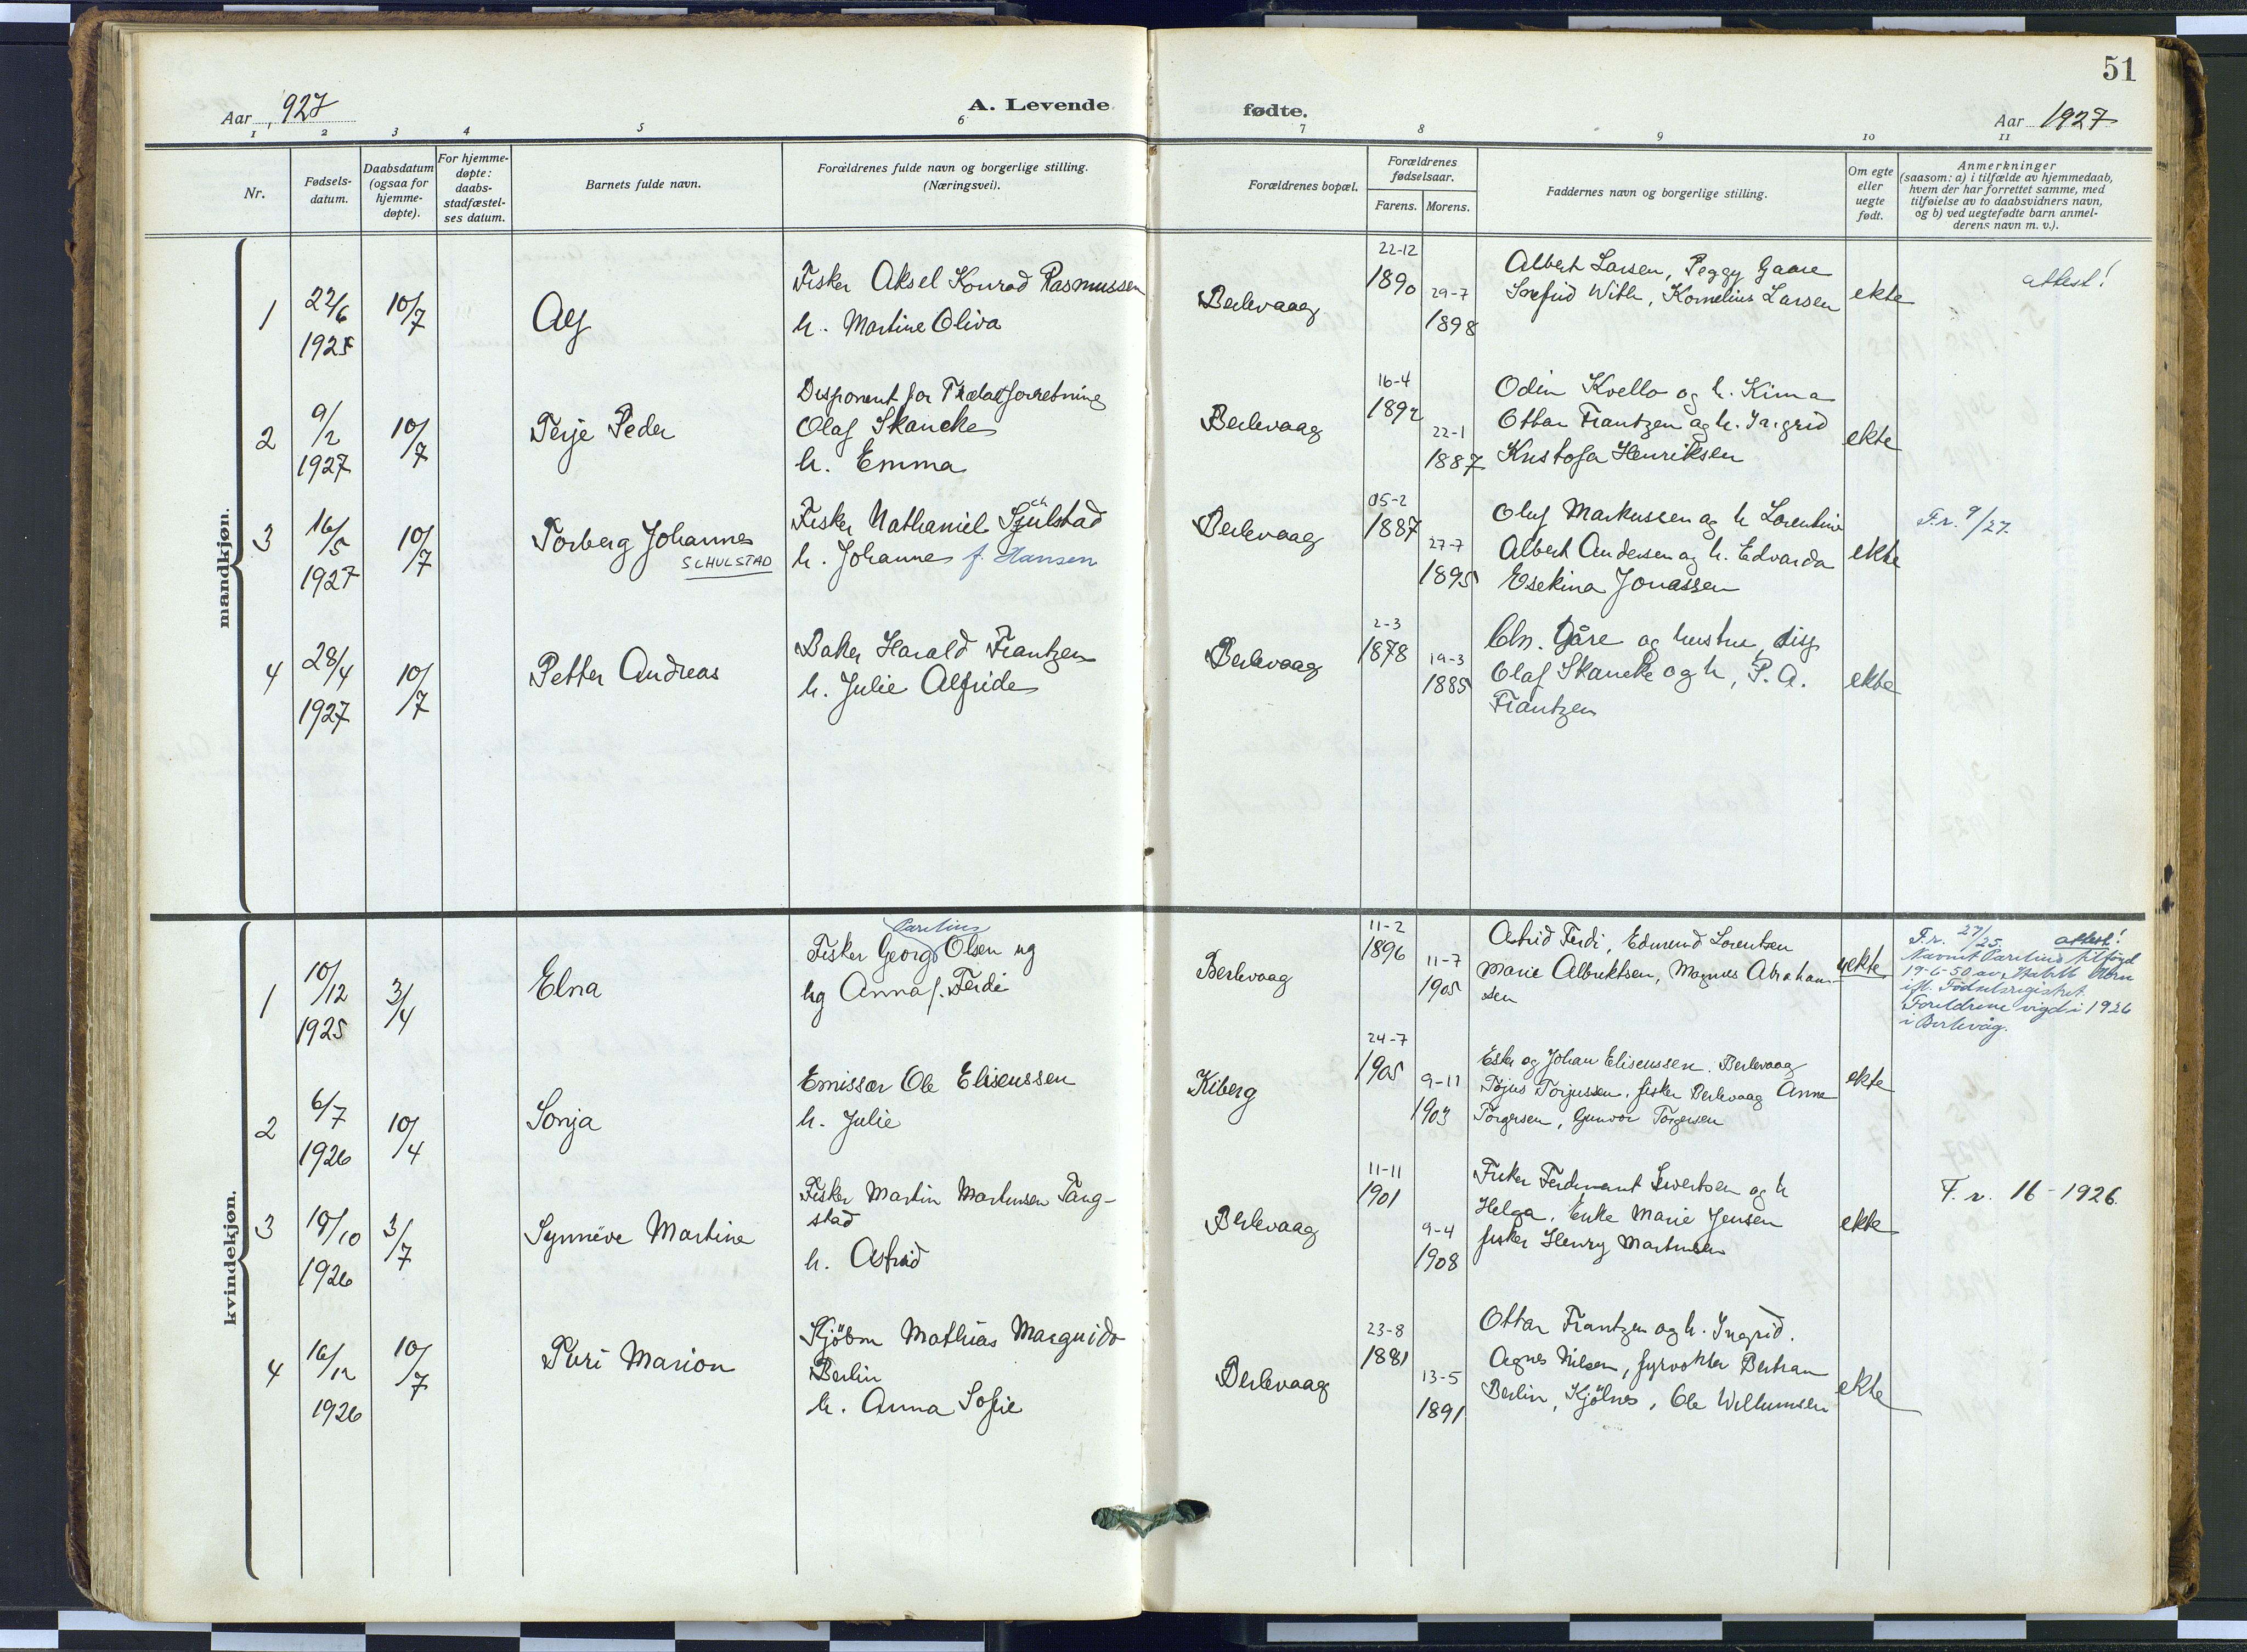 51
Aar 1927
A. Levende
fødte.
Aar 1927
1 2 3 4 5 6 7 8 9 10 11
Nr.
Fødsels-
datum.
Daabsdatum
(ogsaa for
hjemme-
døpte).
For hjemme-
døpte:
daabs-
stadfæstel-
ses datum.
Barnets fulde navn.
Forældrenes fulde navn og borgerlige stilling.
(Næringsvei).
Forældrenes bopæl.
Forældrenes
fødselsaar.
Farens. Morens.
Faddernes navn og borgerlige stilling.
Om egte
eller
uegte
født.
Anmerkninger
(saasom: a) i tilfælde av hjemmedaab,
hvem der har forrettet samme, med
tilføielse av to daabsvidners navn,
og b) ved uegtefødte barn anmel-
derens navn m. v.).
mandkjøn.
1
22/6
1925
10/7
Alf
Fisker Aksel Konrad Rasmussen
h. Martine Oliva
Berlevaag
22-12
1890
29-7
1898
Albert Larsen, Peggy Gaare
With, Kornelius Larsen
ekte
attest!
2
9/2
1927
10/7
Terje Peder
Disponent for
Olaf Skancke
h. Emma
Berlevaag
16-4
1892
22-1
1887
Odin Kvello og h. Kima
Ottar Frantzen og h. Ingrid
Kristofa Henriksen
ekte
3
16/5
1927
10/7
Torberg Johannes
SCHULSTAD
Fisker Nathaniel Sjulstad
ch
h. Johanne f. Hansen
Berlevaag
05-2
1887
27-7
1895
Oluf Markussen og h Lorentine
Albert Andersen og h. Edvarda
Esekina Jonassen
ekte
F.r. 9/27
4
28/4
1927
10/7
Petter Andreas
Baker Harald Frantzen
h. Julie Alfride
Berlevaag
2-3
1878
19-3
1885
Chr. Gåre og hustru, disp
Olaf Skancke og h, P. A.
Frantzen
ekte
kvindekjøn.
1
10/12
1925
3/4
Elna
Parelius
Fisker Georg Olsen og
Anna f. Ferdi
Berlevaag
11-2
1896
11-7
1905
Astrid Ferdi, Edmund Lorentsen
Marie Albriktsen, Magnus Abraham-
sen
uekte
F.r. 27/25. attest!
Navnet Parelius tilføyd
19-6-50 av
ifl. Fødselsregistret.
Foreldrene vigd i 1926
i Berlevåg.
2
6/7
1926
10/4
Sonja
Emissær Ole Eliseussen
h. Julie
Kiberg
24-7
1905
9-11
1903
Ester og Johan Eliseussen. Berlevaag
Tojus Torjussen, fisker Berlevaag Anna
Torgersen, Gunvor Torgersen
ekte
3
19/10
1926
3/7
Synnöve Martine
Fisker Martin Martinsen Tang-
stad
h. Astrid
Berlevaag
11-11
1901
9-4
1908
Fisker Ferdinant Sivertsen og h
Helga, Enke Marie Jensen
fisker Henry Martinsen
ekte
F. r. 16-1926.
4
16/12
1926
10/7
Puri Marion
Kjöbm Mathias Marguido
Berlin
h. Anna Sofie
Berlevaag
23-8
1881
13-5
1891
Ottar Frantzen og h. Ingrid.
Agnes Nilsen, fyrvokter Bertram
Berlin, Kjölnes, Ole Willumsen
ekte